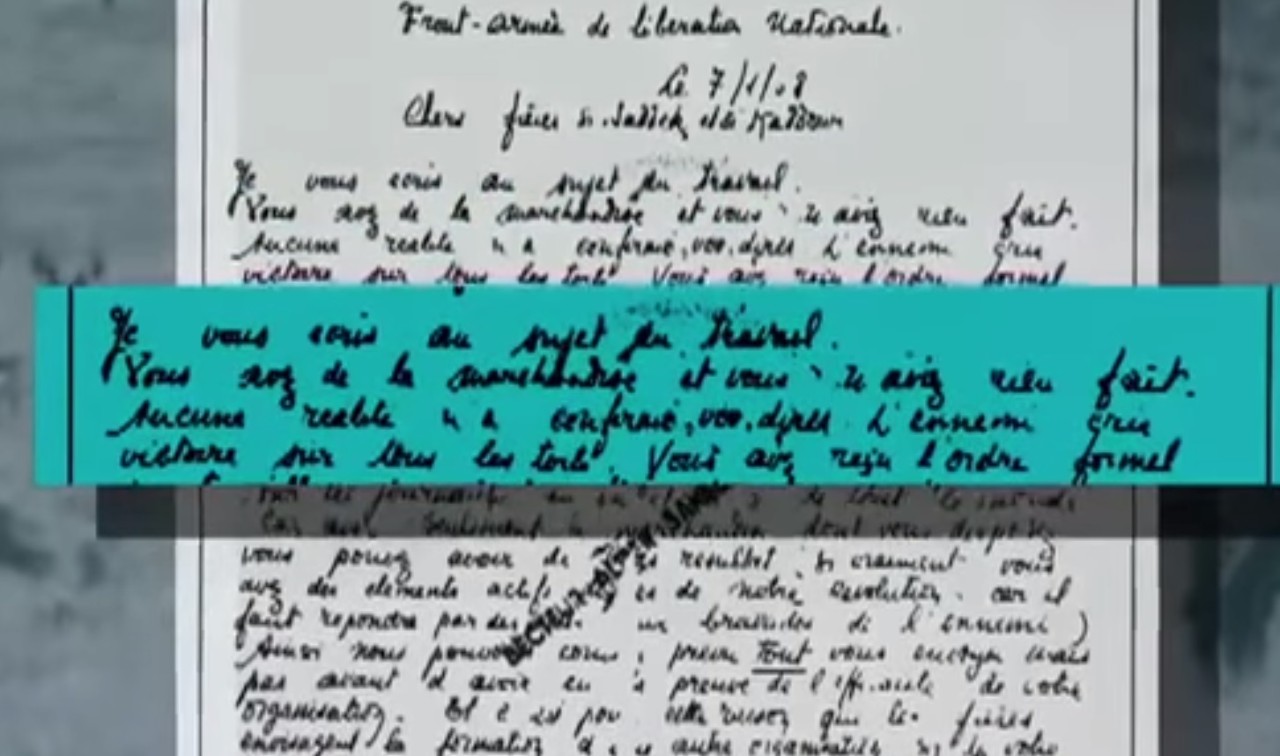 Front-armée de liberation Nationale.
Le 7/1/58
Chers frères si. Sadick et si Kaddour
Je vous ecris au sujet du travail.
Vous avez de la marchandise et vous n'avez rien fait.
Aucune realité n'a confirmé, vos, dires. L'ennemi crie
victoire sur tous les toits. Vous avez reçu l'ordre formel
Je vous ecris au sujet du travail.
Vous avez de la marchandise et vous n'avez rien fait.
Aucune realité n'a confirmé, vos, dires. L'ennemi crie
victoire sur tous les toits. Vous avez reçu l'ordre formel
sur les journaux
seulement la dont vous disposez
vous pouvez avoir de resultat si vraiment vous
avez des elements actifs de notre revolution. car il
faut repondre par des braivades de l'ennemi)
Ainsi nous pouvons preuve Tout vous envoyer mais
pas avant d'avoir eu la preuve de l'efficacité de votre
organisation. Et c'est pour cette raison que les frères
envisagent la formation d'une autre organisation si la votre